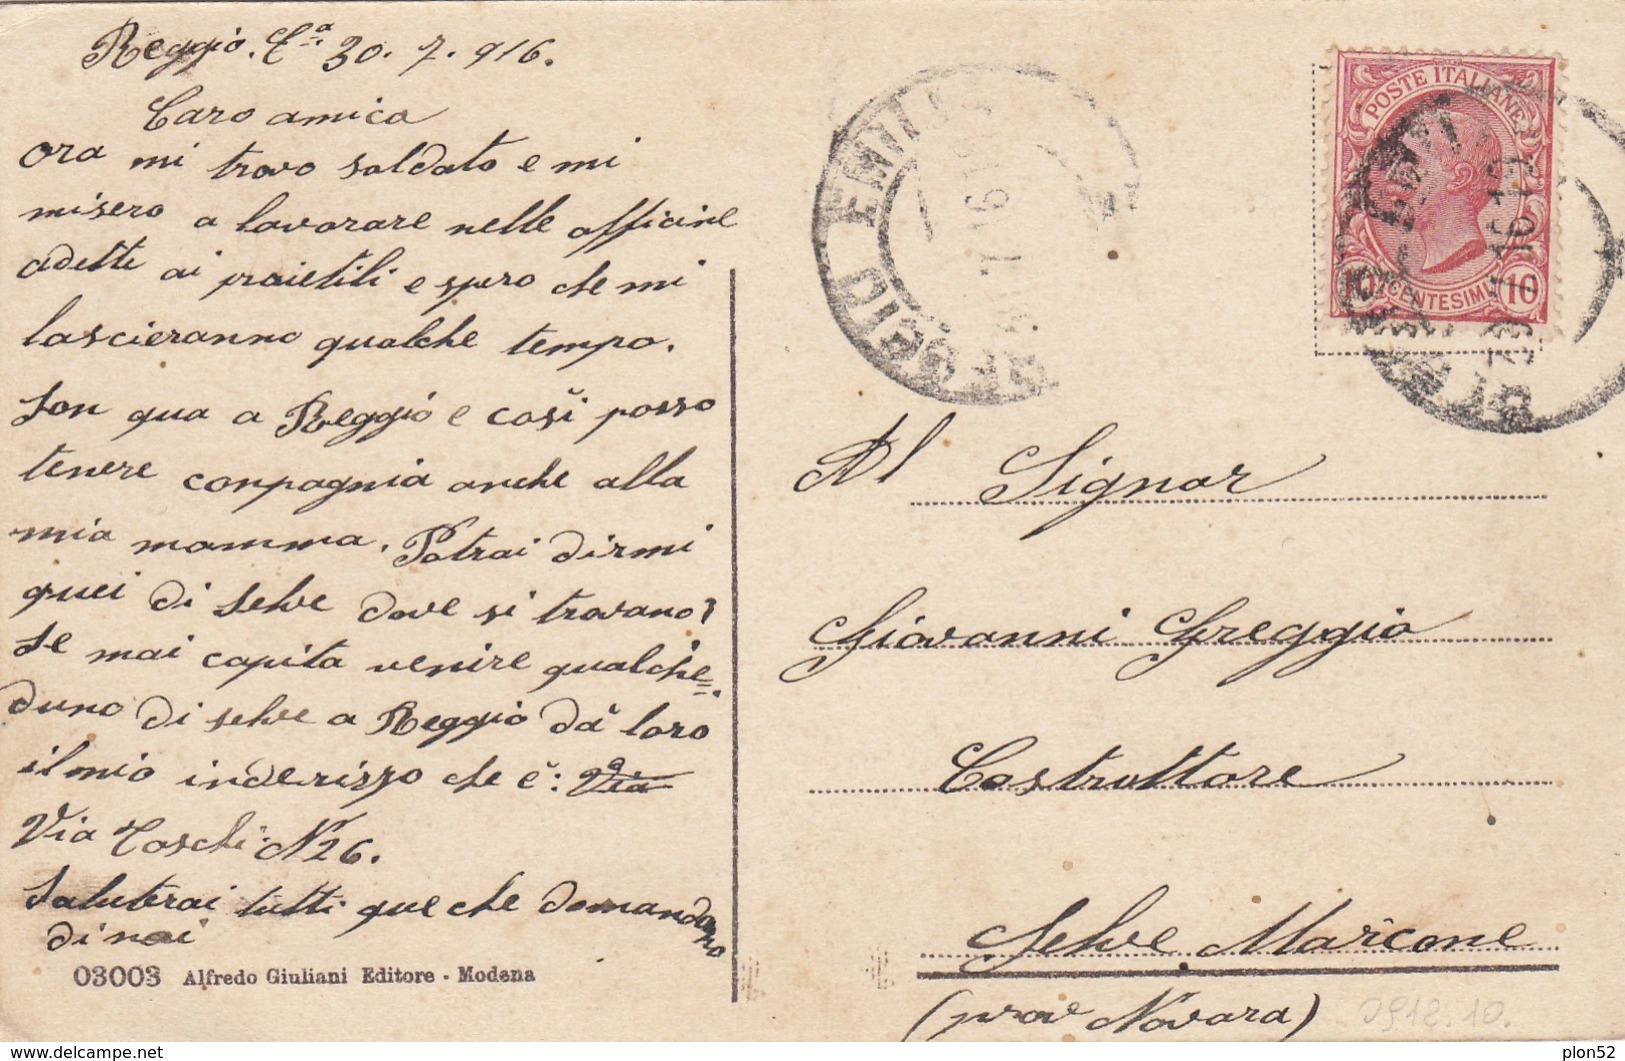 Reggio. E.a 30. 7. 916.
Caro amico
ora mi trovo soldato e mi
misero a lavorare nelle officine
adette ai proietili e spero che mi
lascieranno qualche tempo.
Son qua a Reggio e così posso
tenere compagnia anche alla
mia mamma. Potrai dirmi
quei di Selve dove si trovano?
Se mai capita venire qualche=
duno di selve a Reggio dà loro
il mio inderisso che è: Via
Via Toschi N 26.
Saluterai tutti que che domandano
di noi
03003 Alfredo Giuliani Editore - Modena
REGGIO EMILIA
POSTE ITALIANE
10 CENTESIMI 10
Al Signor
Giovanni Greggio
Costruttore
Selve Marcone
(prov Novara)
0912.10.
https://www.delcampe.net
plon52